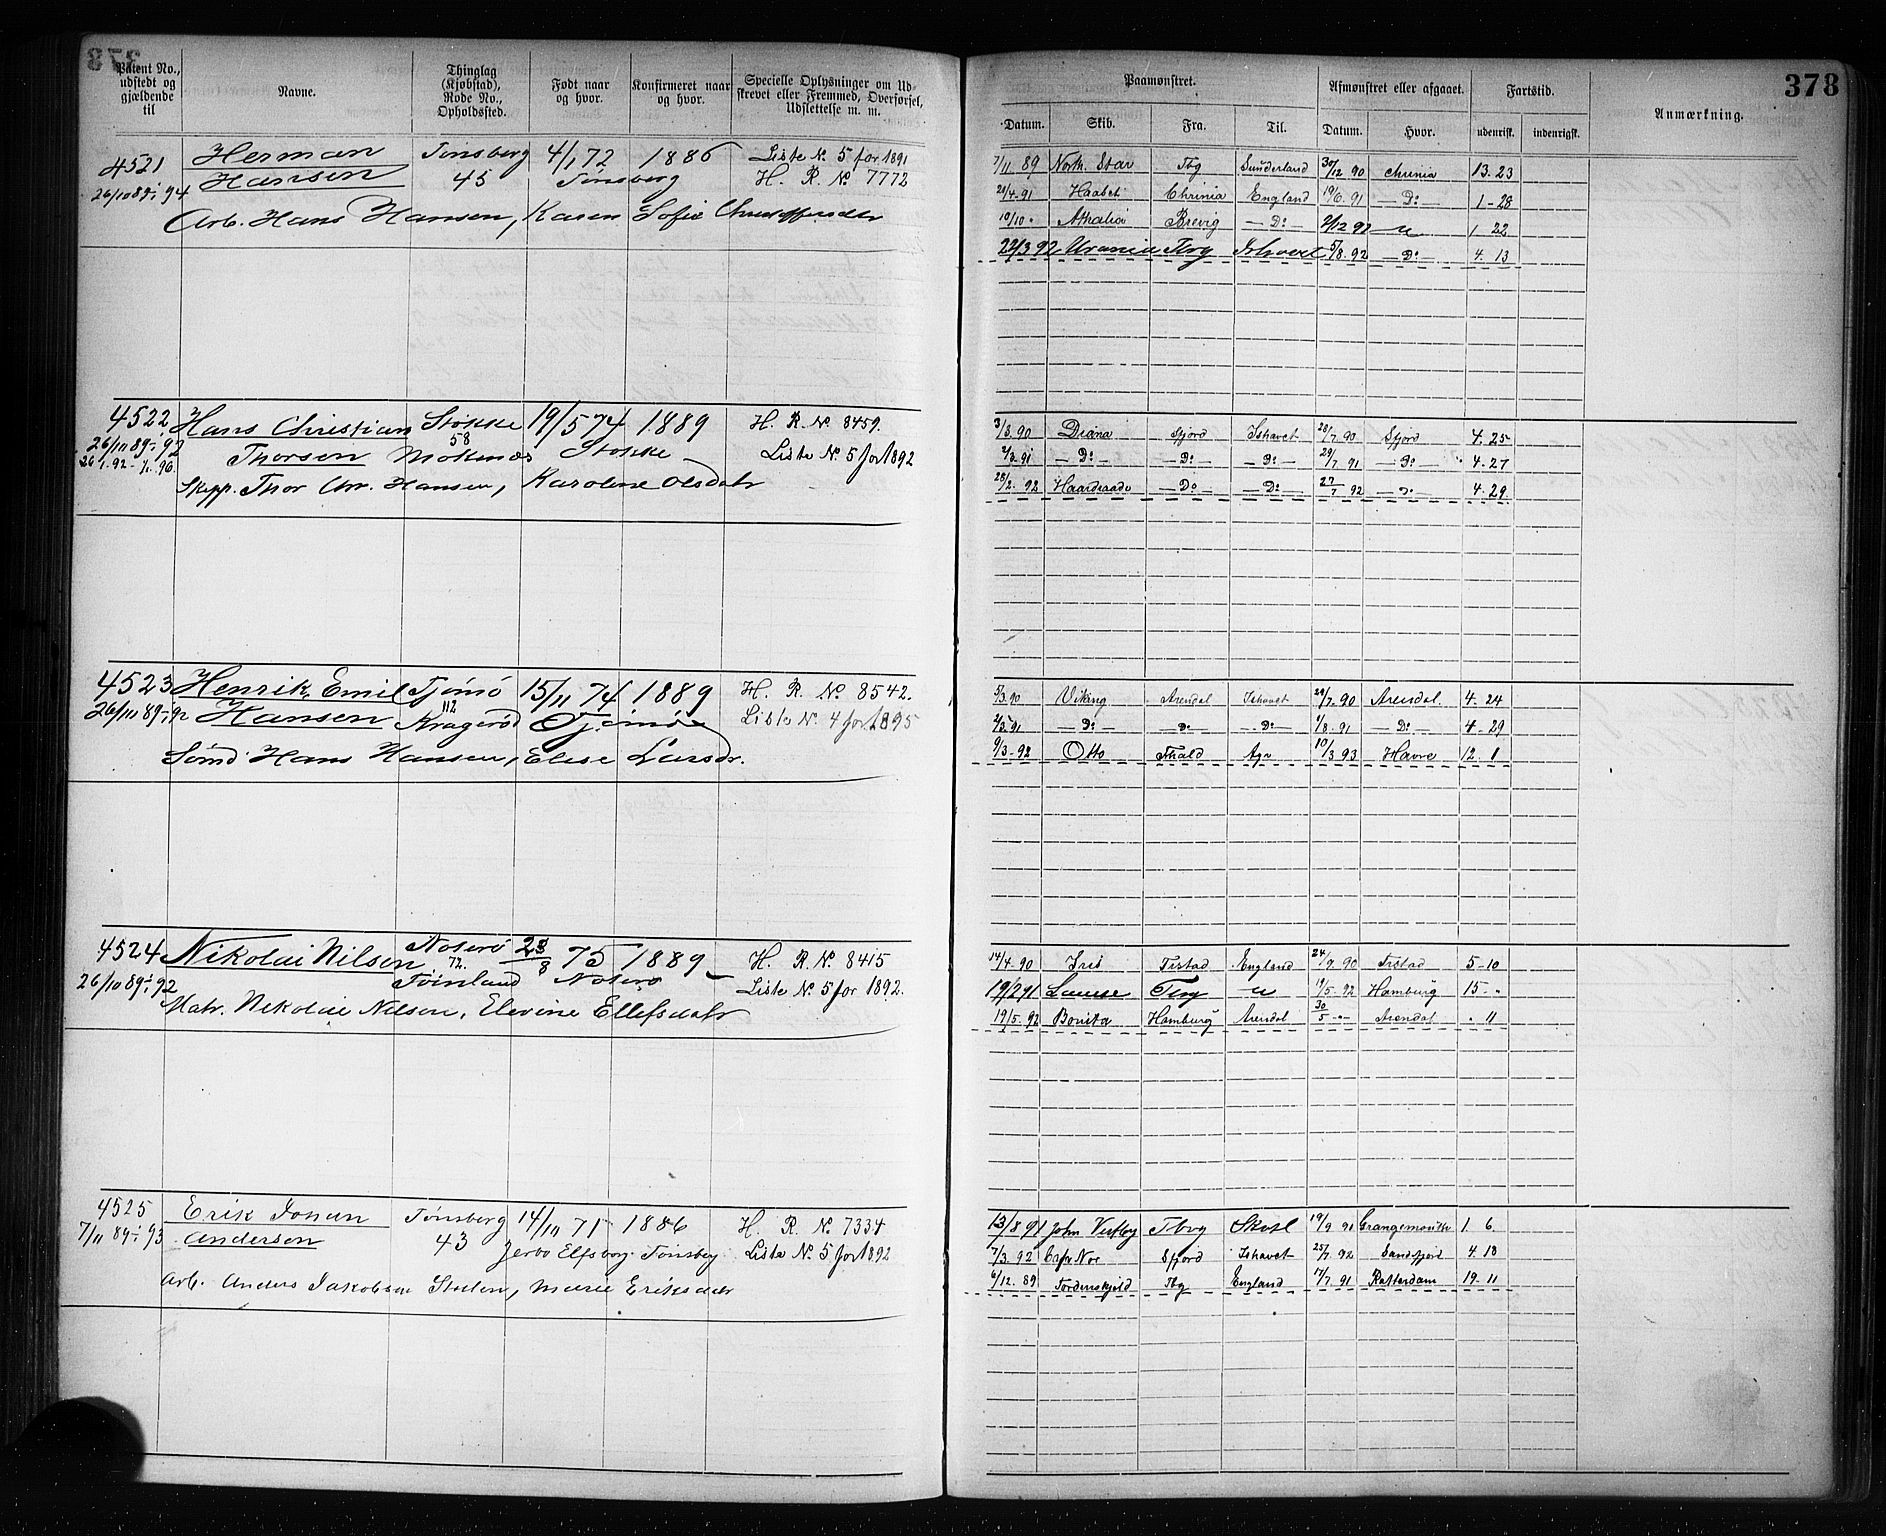 378
Patent No., udstedt og gjældende til
Navne.
Thinglag (Kjøbstad), Rode No., Opholdssted.
Født naar og hvor.
Konfirmeret naar og hvor.
Specielle Oplysninger om Udskrevet eller Fremmed, Overførsel, Udslettelse m. m.
Paamønstret.
Afmønstret eller afgaaet.
Fartstid.
Anmærkning.
378
Datum. Skib. Fra. Til. Datum. Hvor. udenrisk. indenrigsk.
4521 Herman Tønsberg 4/1 72 1886 Liste No. 5 for 1891
26/10 89 - 94 Hansen 45 Tønsberg H. R. No 7772
Arb. Hans Hansen, Karen Sofie
7/11 89 North Star Tbg Sunderland 30/12 90 Chrinia 13. 23
28/4. 91 Haabet Chrinia England 19/6. 91 — Do — 1 - 28
10/10 " Athalia Brevig — Do — 2/12 92 1 22
22/3 92 Urania Tbrg Ishavet 5/8. 92 — Do — 4. 13
4522 Hans Christian Stokke 19/5 74 1889 H. R. No. 8459.
26/11 89 - 92 Thorsen 58 Moknæs Stokke Liste No. 5 for 1892
26/1. 92 - /1. 96
Skipp. Thor Chr. Hansen, Karoline Olsdatr
3/3. 90 Diana Sfjord Ishavet 28/7. 90 Sfjord 4. 25
2/3. 91 — Do — — Do — — Do — 29/7. 91 — Do — 4. 27
28/2. 92 Haardraade — Do — Do — 27/7 92 — Do — 4. 29
4523 Henrik Emil Tjømø 15/11 74 1889 H. R. No. 8542.
26/11 89 - 92 Hansen 112 Kragerød Tjømø Liste No. 4 for 1895
Sømd Hans Hansen, Elise Larsdr.
5/3. 90 Viking Arendal Ishavet 29/7. 90 Arendal. 4. 24
2/3. 91 — Do — Do — Do — 1/8. 91 — Do — 4 - 29
9/3 - 92 Otto Fhald 10/3 93 Havre 12. 1
4524 Nikolai Nilsen Noterø 23/8 75 1889 H. R. No. 8415
26/10 89 - 92 72. Føinland Noterø Liste No. 5 for 1892.
Matr. Nikolai Nilsen, Elevine Ellefsdatr
14/4. 90 Iris Fristad England 24/9. 90 Fristad 5 - 10
19/2 91 Louise Tbrg 19/5. 92 Hamburg 15 - "
19/5. 92 Bonita Hamburg Arendal 30/5 - " - Arendal " 11
4525 Erik Johan Tønsberg 14/11 71 1886 H. R. No. 7334
7/11 89 - 93 Andersen 43 Jerbo Elfsborg Tønsberg Liste No. 5 for 1892
Arb. Anders Jakobsen Stolen, Marie Eriksdatr
13/8 91 John Vestby Tbrg Skotl 19/9 91 Grangemouth 1. 6
7/3. 92 Capr Nor Sfjord Ishavet 25/7. 92 Sandfjord 4. 18
6/12. 89 Tordenskjold Tbg England 17/7. 91 Rotterdam 19. 11